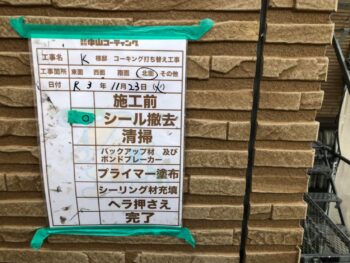 株式会社中山コーティング
工事名 K 様邸 コーキング打ち替え工事
工事箇所 東面 西面 南面 北面 その他
日付 R 3 年 11月 23日(火)
施工前
シール撤去
清掃
バックアップ材 及び
ボンドブレーカー
プライマー塗布
シーリング材充填
ヘラ押さえ
完了